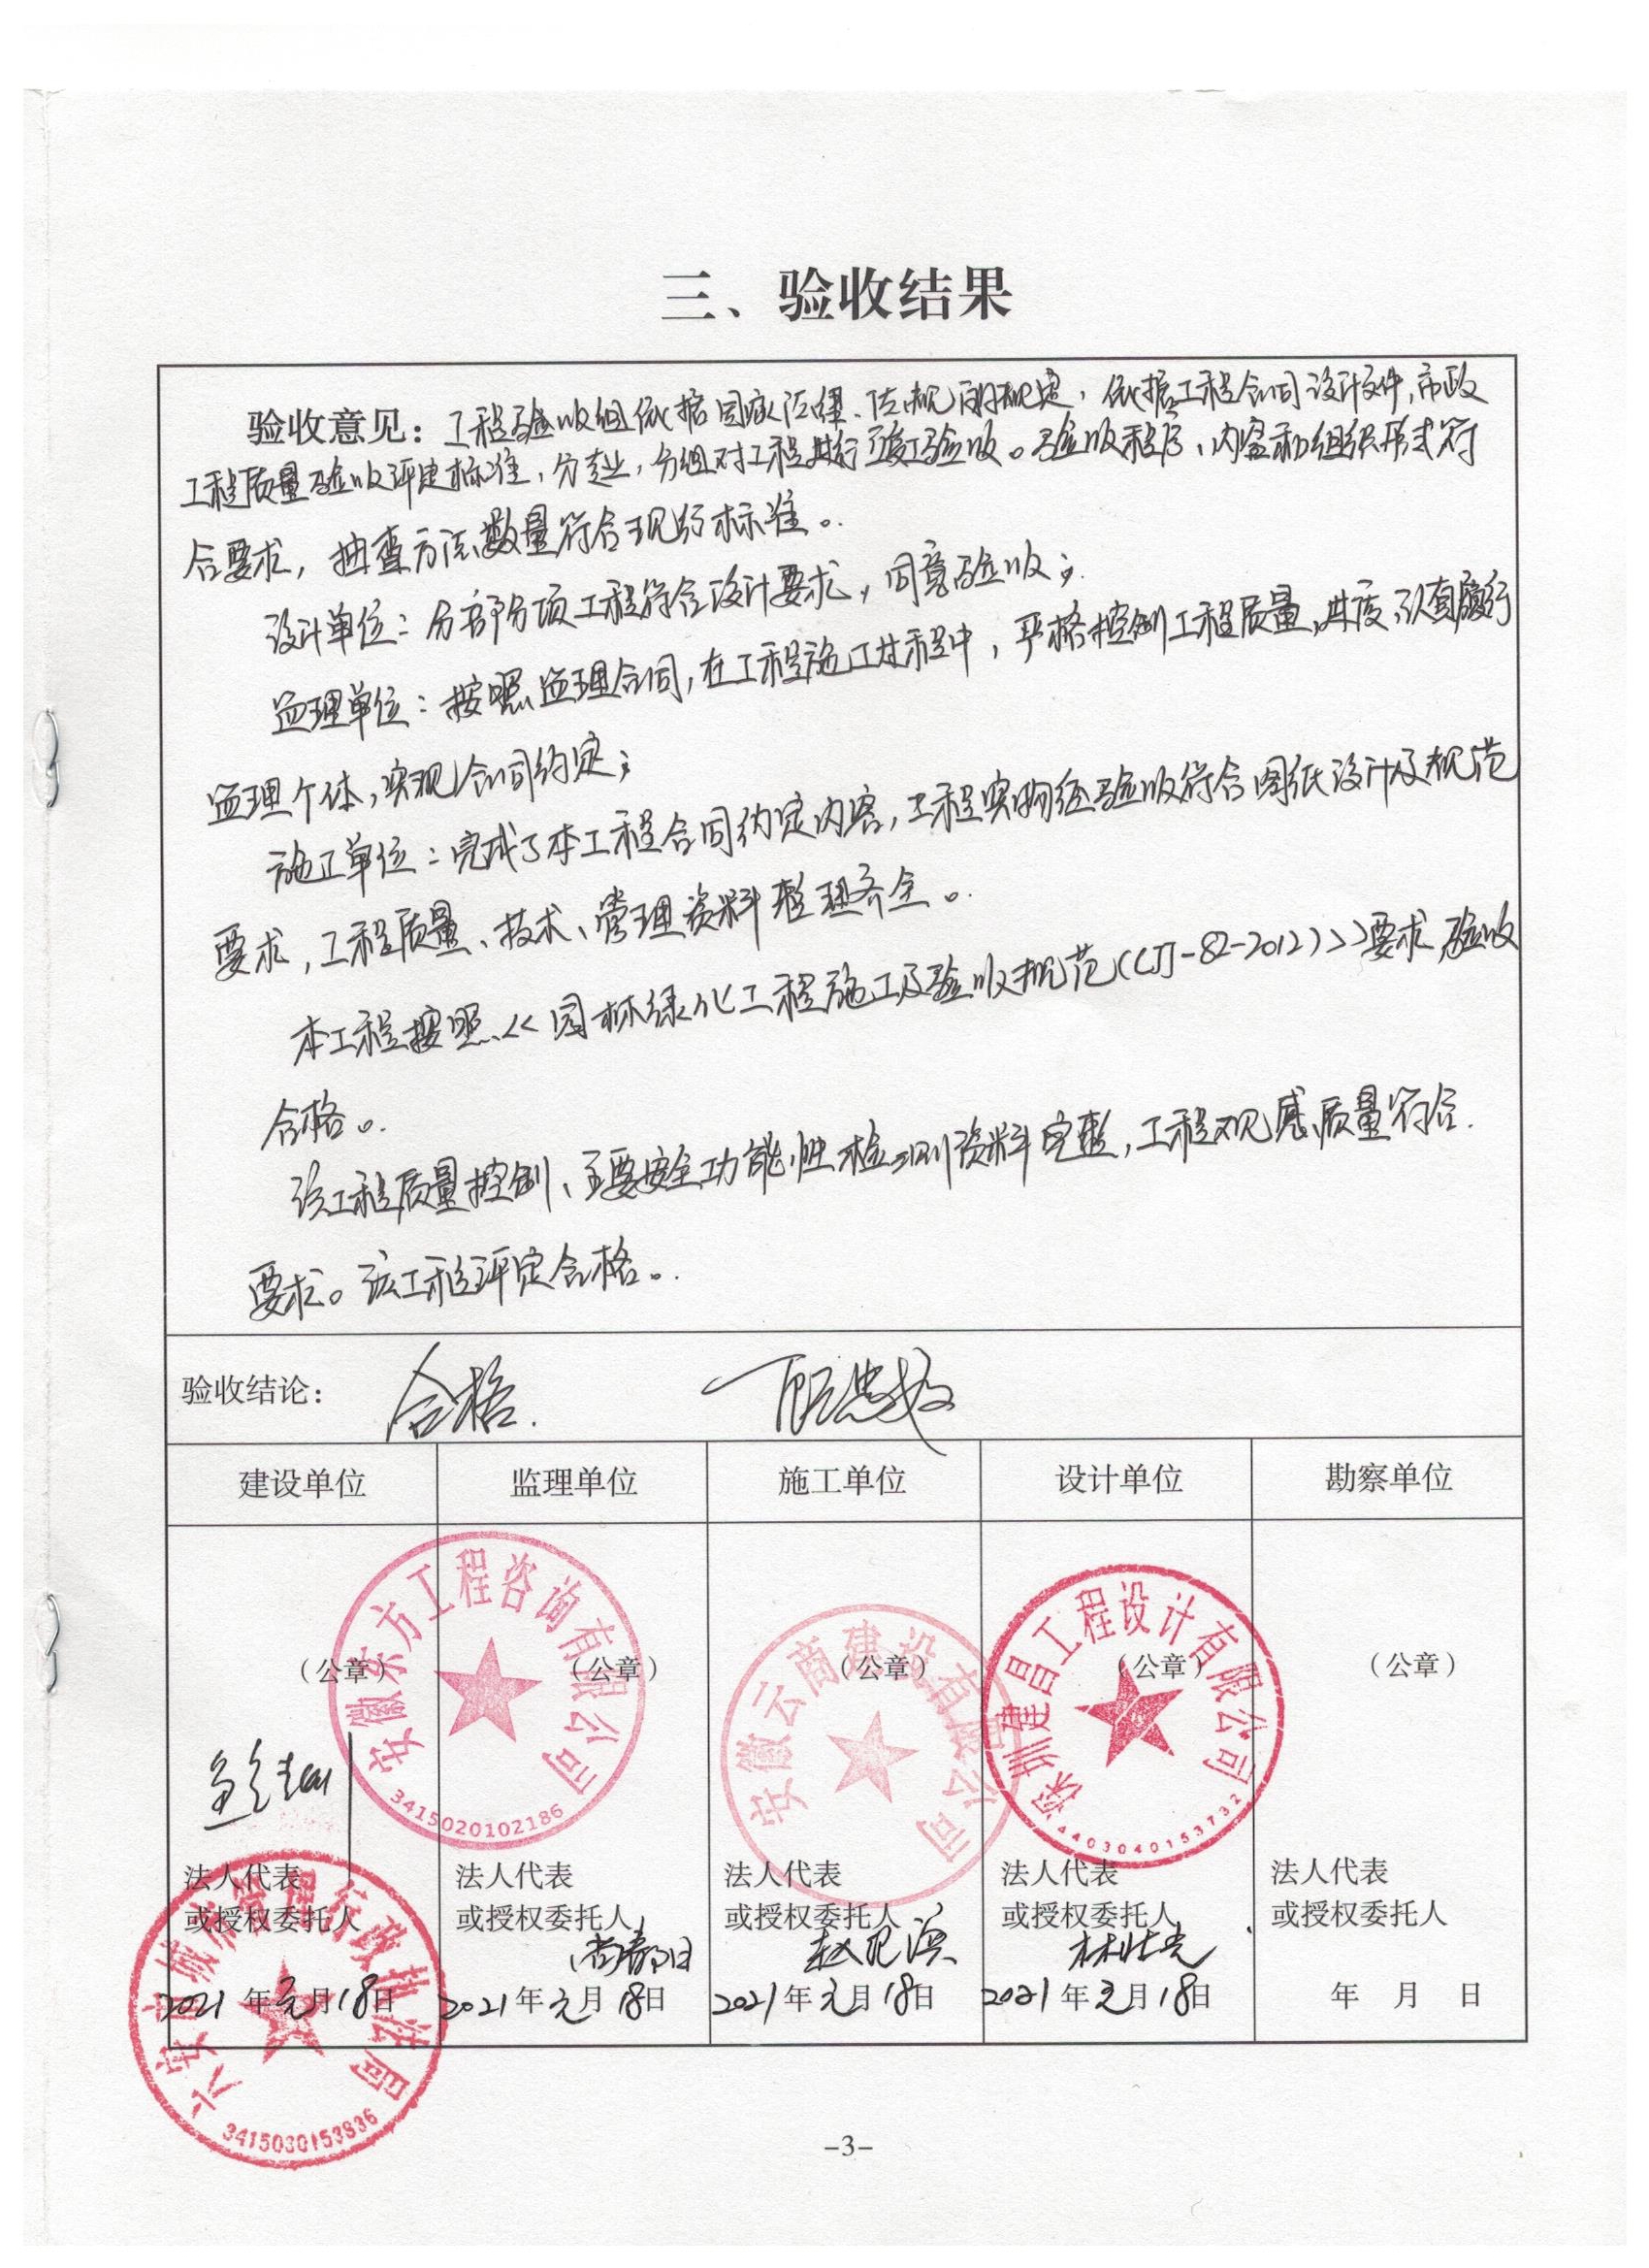 三、验收结果
验收意见：工程验收组依据国家法律、法规的规定，依据工程合同设计文件，市政
工程质量验收评定标准，分专业，分组对工程进行竣工验收。验收程序、内容和组织形式符
合要求，抽查方法、数量符合现行标准。
设计单位：分部分项工程符合设计要求，同意验收；
监理单位：按照监理合同，在工程施工过程中，严格控制工程质量、进度，认真履行
监理个体，实现合同约定；
施工单位：完成了本工程合同约定内容，工程实物经验收符合图纸设计及规范
要求，工程质量、技术、管理资料整理齐全。
本工程按照<<园林绿化工程施工及验收规范(CJJ-82-2012)>>要求验收
合格。
该工程质量控制、主要安全功能性检测资料完整，工程观感质量符合
要求。该工程评定合格。
验收结论： 合格.
建设单位 监理单位 施工单位 设计单位 勘察单位
（公章） （公章） （公章） （公章） （公章）
安徽东方工程咨询有限公司
3415020102186
安徽云商建设有限公司
深圳建昌工程设计有限公司
4403040153732
法人代表 法人代表 法人代表 法人代表 法人代表
或授权委托人 或授权委托人 或授权委托人 或授权委托人 或授权委托人
2021年元月18日 2021年元月18日 2021年元月18日 2021年元月18日 年 月 日
六安市城市管理行政执法局
3415030153836
-3-